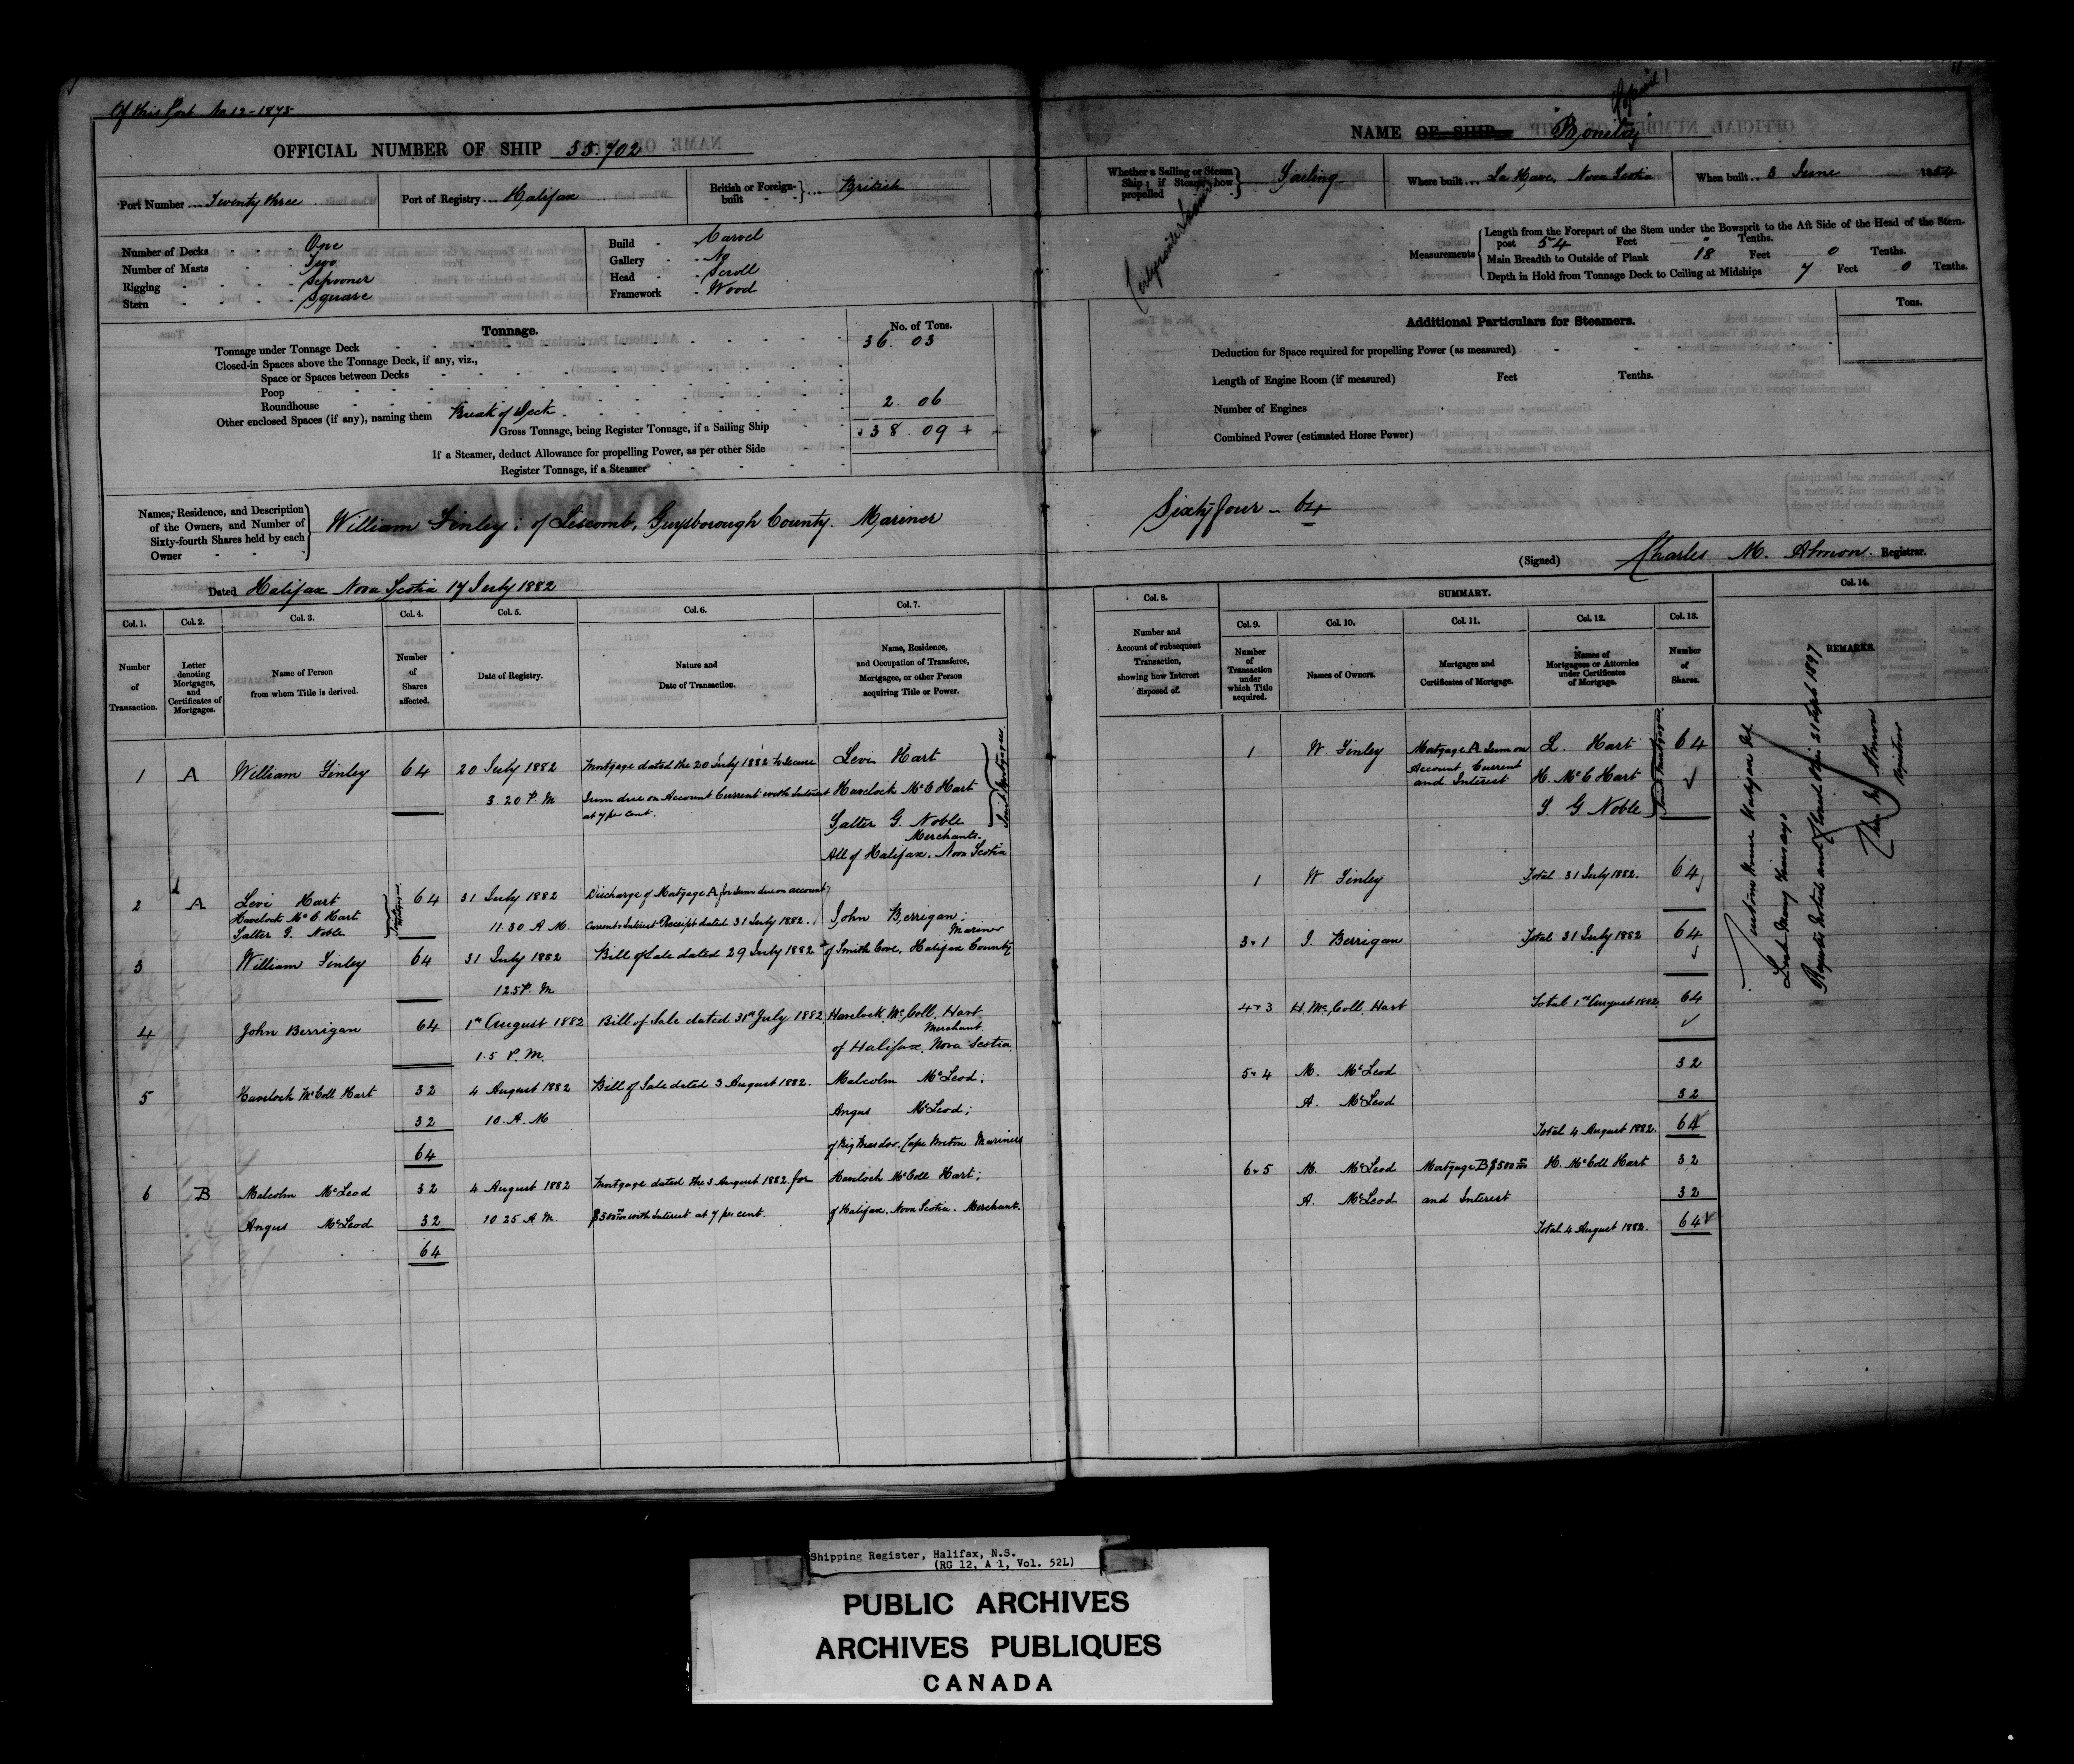 Of this Port No 12 - 1875
OFFICIAL NUMBER OF SHIP 55.702
Port Number Twenty three
Port of Registry Halifax
British or Foreign-built British
Number of Decks One
Number of Masts Two
Rigging Schooner
Stern Square
Build Carvel
Gallery No
Head Scroll
Framework Wood
Tonnage.
No. of Tons.
Tonnage under Tonnage Deck 36. 03
Closed-in Spaces above the Tonnage Deck, if any, viz.,
Space or Spaces between Decks
Poop
Roundhouse
Other enclosed Spaces (if any), naming them Break of Deck 2. 06
Gross Tonnage, being Register Tonnage, if a Sailing Ship 38. 09
If a Steamer, deduct Allowance for propelling Power, as per other Side
Register Tonnage, if a Steamer
Names, Residence, and Description
of the Owners, and Number of
Sixty-fourth Shares held by each
Owner
William Finley; of Liscomb, Guysborough County. Mariner
Dated Halifax Nova Scotia 17 July 1882
Col. 1. Col. 2. Col. 3. Col. 4. Col. 5. Col. 6. Col. 7.
Number of Transaction.
Letter denoting Mortgages, and Certificates of Mortgages.
Name of Person from whom Title is derived.
Number of Shares affected.
Date of Registry.
Nature and Date of Transaction.
Name, Residence, and Occupation of Transferee, Mortgagee, or other Person acquiring Title or Power.
1 A William Finley 64 20 July 1882 Mortgage dated the 20 July 1882 to secure Levi Hart
3.20 P.M. Sum due on Account Current with Interest Havelock McC Hart
at 7 per cent.
Salter G. Noble
Merchants.
All of Halifax. Nova Scotia
Joint Mortgagees
2 A Levi Hart 64 31 July 1882 Discharge of Mortgage A for Sum due on account
Havelock McC Hart 11.30 A.M. Current & Interest Receipt dated 31 July 1882.
Salter G. Noble
John Berrigan;
Mariner
3 William Finley 64 31 July 1882 Bill of Sale dated 29 July 1882 of Smith Cove, Halifax County
1 25 P.M
4 John Berrigan 64 1st August 1882 Bill of Sale dated 31st July 1882 Havelock McColl Hart
Merchant
1.5 P.M. of Halifax, Nova Scotia
5 Havelock McColl Hart 32 4 August 1882 Bill of Sale dated 3 August 1882. Malcolm McLeod;
32 10. A.M Angus McLeod;
64
Cape Breton Mariners
6 B Malcolm McLeod 32 4 August 1882 Mortgage dated the 3 August 1882 for Havelock McColl Hart;
Angus McLeod 32 10 25 A.M. $500 with Interest at 7 per cent. of Halifax, Nova Scotia. Merchant.
64
NAME OF SHIP
Whether a Sailing or Steam Ship; if Steam, how propelled Sailing
Where built La Have, Nova Scotia
When built 3 June 1854
Measurements
Length from the Forepart of the Stem under the Bowsprit to the Aft Side of the Head of the Stern-
post 54 Feet " Tenths.
Main Breadth to Outside of Plank 18 Feet 0 Tenths.
Depth in Hold from Tonnage Deck to Ceiling at Midships 7 Feet 0 Tenths.
Additional Particulars for Steamers.
Tons.
Deduction for Space required for propelling Power (as measured)
Length of Engine Room (if measured) Feet Tenths.
Number of Engines
Combined Power (estimated Horse Power)
Sixty four - 64
(Signed) Charles M. Almon. Registrar.
Col. 8.
SUMMARY.
Col. 14.
Col. 9. Col. 10. Col. 11. Col. 12. Col. 13.
Number and Account of subsequent Transaction, showing how Interest disposed of.
Number of Transaction under which Title acquired.
Names of Owners.
Mortgages and Certificates of Mortgage.
Names of Mortgagees or Attornies under Certificates of Mortgage.
Number of Shares.
REMARKS.
1 W. Finley Mortgage A Sum on L. Hart 64
Account Current H. McC Hart
and Interest
S. G Noble
Joint Mortgagees
1 W. Finley Total 31 July 1882. 64
3 1 J. Berrigan Total 31 July 1882 64
4 3 H. McColl Hart Total 1st August 1882 64
5 4 M. McLeod 32
A. McLeod 32
Total 4 August 1882. 64
6 5 M. McLeod Mortgage B $500 H. McColl Hart 32
A. McLeod and Interest 32
Total 4 August 1882. 64
Almon
Registrar
Shipping Register, Halifax, N.S.
(RG 12, A 1, Vol. 52L)
PUBLIC ARCHIVES
ARCHIVES PUBLIQUES
CANADA